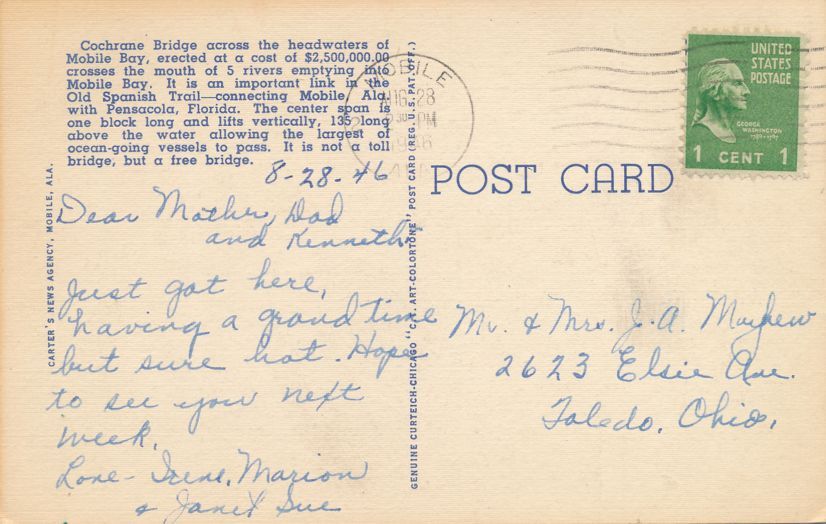 Cochrane Bridge across the headwaters of
Mobile Bay, erected at a cost of $2,500,000.00
crosses the mouth of 5 rivers emptying into
Mobile Bay. It is an important link in the
Old Spanish Trail—connecting Mobile, Ala.
with Pensacola, Florida. The center span is
one block long and lifts vertically, 135 long
above the water allowing the largest of
ocean-going vessels to pass. It is not a toll
bridge, but a free bridge.
8-28-46
Dear Mother, Dad
and Kenneth
Just got here,
having a grand time
but sure hot. Hope
to see you next
week.
Love- Irene, Marion
& Janet Sue
CARTER'S NEWS AGENCY, MOBILE, ALA.
GENUINE CURTEICH-CHICAGO "C.T. ART-COLORTONE" POST CARD (REG. U.S. PAT. OFF.)
MOBILE
AUG 28
PM
1946
ALA
POST CARD
UNITED
STATES
POSTAGE
GEORGE
WASHINGTON
1789-1797
1 CENT 1
Mr. & Mrs. J. A. Mayhew
2623 Elsie Ave.
Toledo, Ohio.